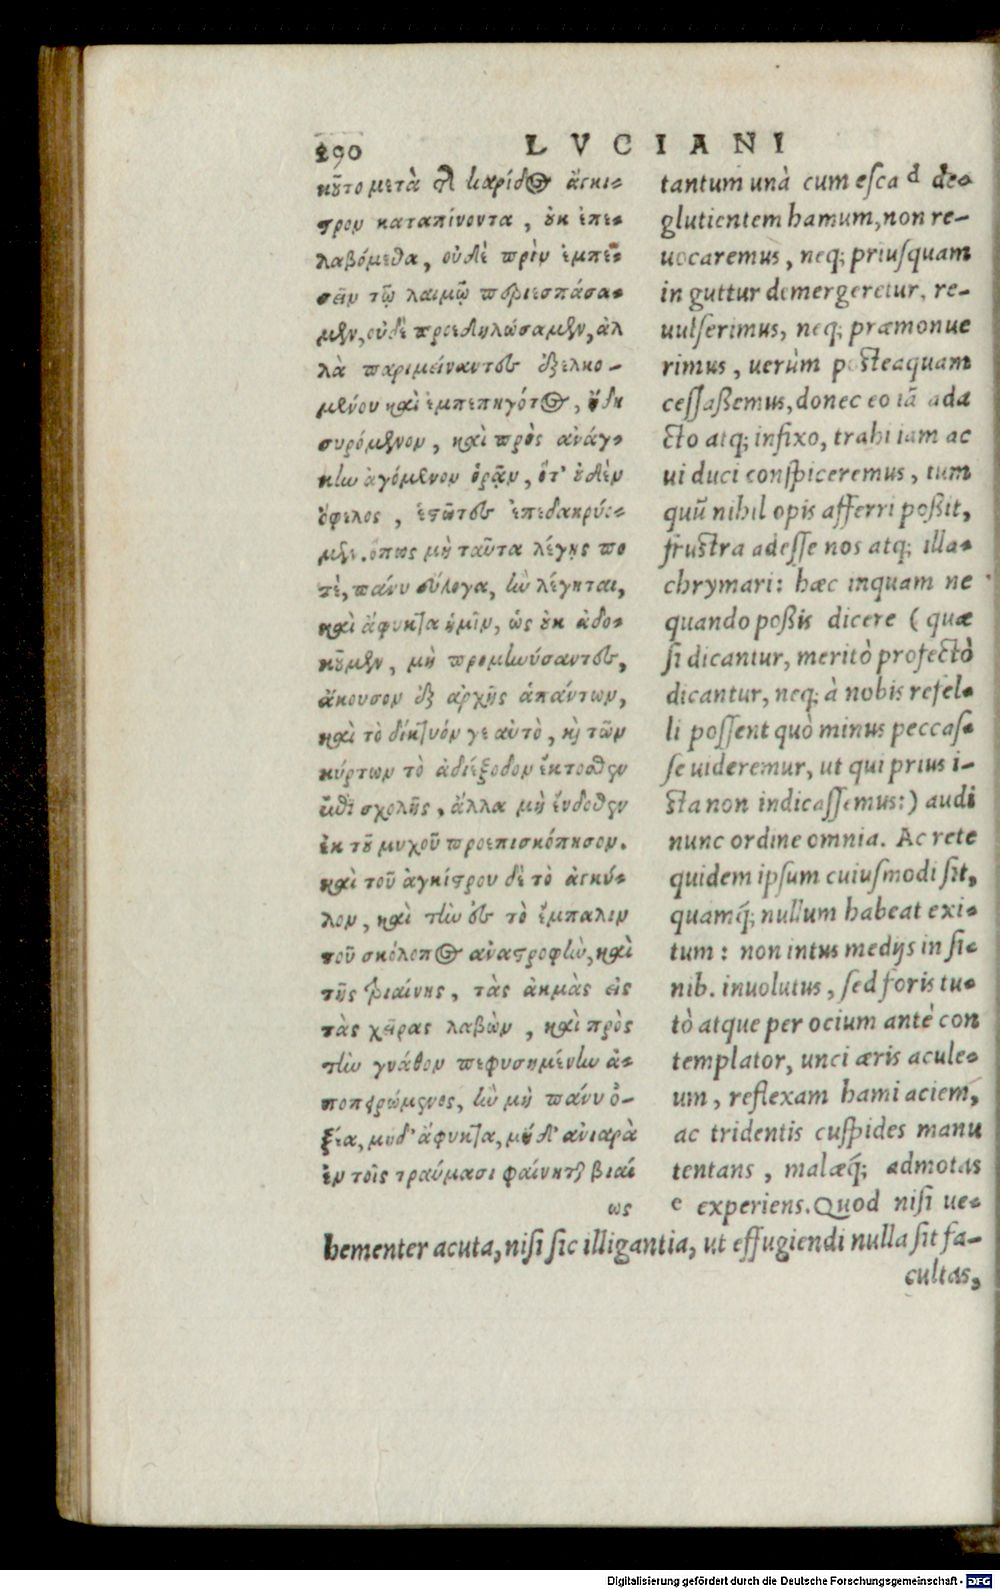 290
LVCIANI
κοῦτο μετὰ τῆς καρίδος ἄγκι-
στρον καταπίνοντα, οὐκ ἐπε-
λαβόμεθα, οὐδὲ πρὶν ἐμπε-
σεῖν τῷ λαιμῷ περιεσπάσα-
μεν, οὐδὲ προεδηλώσαμεν, ἀλ
λὰ παριμείναντες ἐξελκο-
μένου καὶ ἐμπεπηγότος, ἤδη
συρόμενον, καὶ πρὸς ἀνάγ-
κην ἀγόμενον ὁρᾶν, ὅτ' οὐδὲν
ὄφελος, ἑστῶτες ἐπεδακρύο-
μεν. ὅπως μὴ ταῦτα λέγῃς πο
τὲ, πάνυ εὔλογα, ἢν λέγηται,
καὶ ἄφυκτα ἡμῖν, ὡς οὐκ ἀδι-
κοῦμεν, μὴ προμηνύσαντες,
ἄκουσον ἐξ ἀρχῆς ἁπάντων,
καὶ τὸ δίκτυόν γε αὐτὸ, καὶ τῶν
κύρτων τὸ ἀδιέξοδον ἔκτοσθεν
ἐπὶ σχολῆς, ἄλλα μὴ ἔνδοθεν
ἐκ τοῦ μυχοῦ προεπισκόπησον.
καὶ τοῦ ἀγκίστρου δὲ τὸ ἀγκύ-
λον, καὶ τὴν ἐς τὸ ἔμπαλιν
τοῦ σκόλοπος ἀναστροφὴν, καὶ
τῆς τριαίνης, τὰς ἀκμὰς εἰς
τὰς χεῖρας λαβὼν, καὶ πρὸς
τὴν γνάθον πεφυσημένην ἀ-
ποπειρώμενος, ἢν μὴ πάνυ ὀ-
ξέα, μηδ' ἄφυκτα, μηδ' ἀνιαρὰ
ἐν τοῖς τραύμασι φαίνηται βιαί
ως
tantum unà cum esca d de-
glutientem hamum, non re-
uocaremus, neq; priusquam
in guttur demergeretur, re-
uulserimus, neq; præmonue
rimus, uerùm posteaquam
cessaßemus, donec eo iã ada
cto atq; infixo, trahi iam ac
ui duci conspiceremus, tum
quũ nihil opis afferri poßit,
frustra adesse nos atq; illa-
chrymari: hæc inquam ne
quando poßis dicere (quæ
si dicantur, meritò profectò
dicantur, neq; à nobis refel-
li possent quò minus peccas-
se uideremur, ut qui prius i-
sta non indicassemus:) audi
nunc ordine omnia. Ac rete
quidem ipsum cuiusmodi sit,
quamq́; nullum habeat exi-
tum: non intus medijs in si-
nib. inuolutus, sed foris tu-
tò atque per ocium antè con
templator, unci æris acule-
um, reflexam hami aciem,
ac tridentis cuspides manu
tentans, malæq́; admotas
e experiens. Quod nisi ue-
hementer acuta, nisi sic illigantia, ut effugiendi nulla sit fa-
cultas,
Digitalisierung gefördert durch die Deutsche Forschungsgemeinschaft - DFG